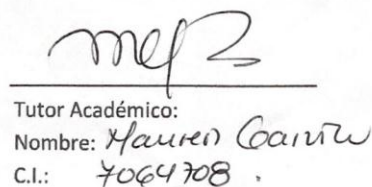 Tutor Académico:
Nombre: Mauren
C.I.: 7064708.